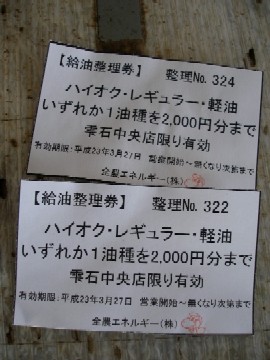 【給油整理券】 整理No. 324
ハイオク・レギュラー・軽油
いずれか1油種を2,000円分まで
雫石中央店限り有効
有効期限：平成23年3月27日 営業開始～無くなり次第まで
全農エネルギー(株)
【給油整理券】 整理No. 322
ハイオク・レギュラー・軽油
いずれか1油種を2,000円分まで
雫石中央店限り有効
有効期限：平成23年3月27日 営業開始～無くなり次第まで
全農エネルギー(株)